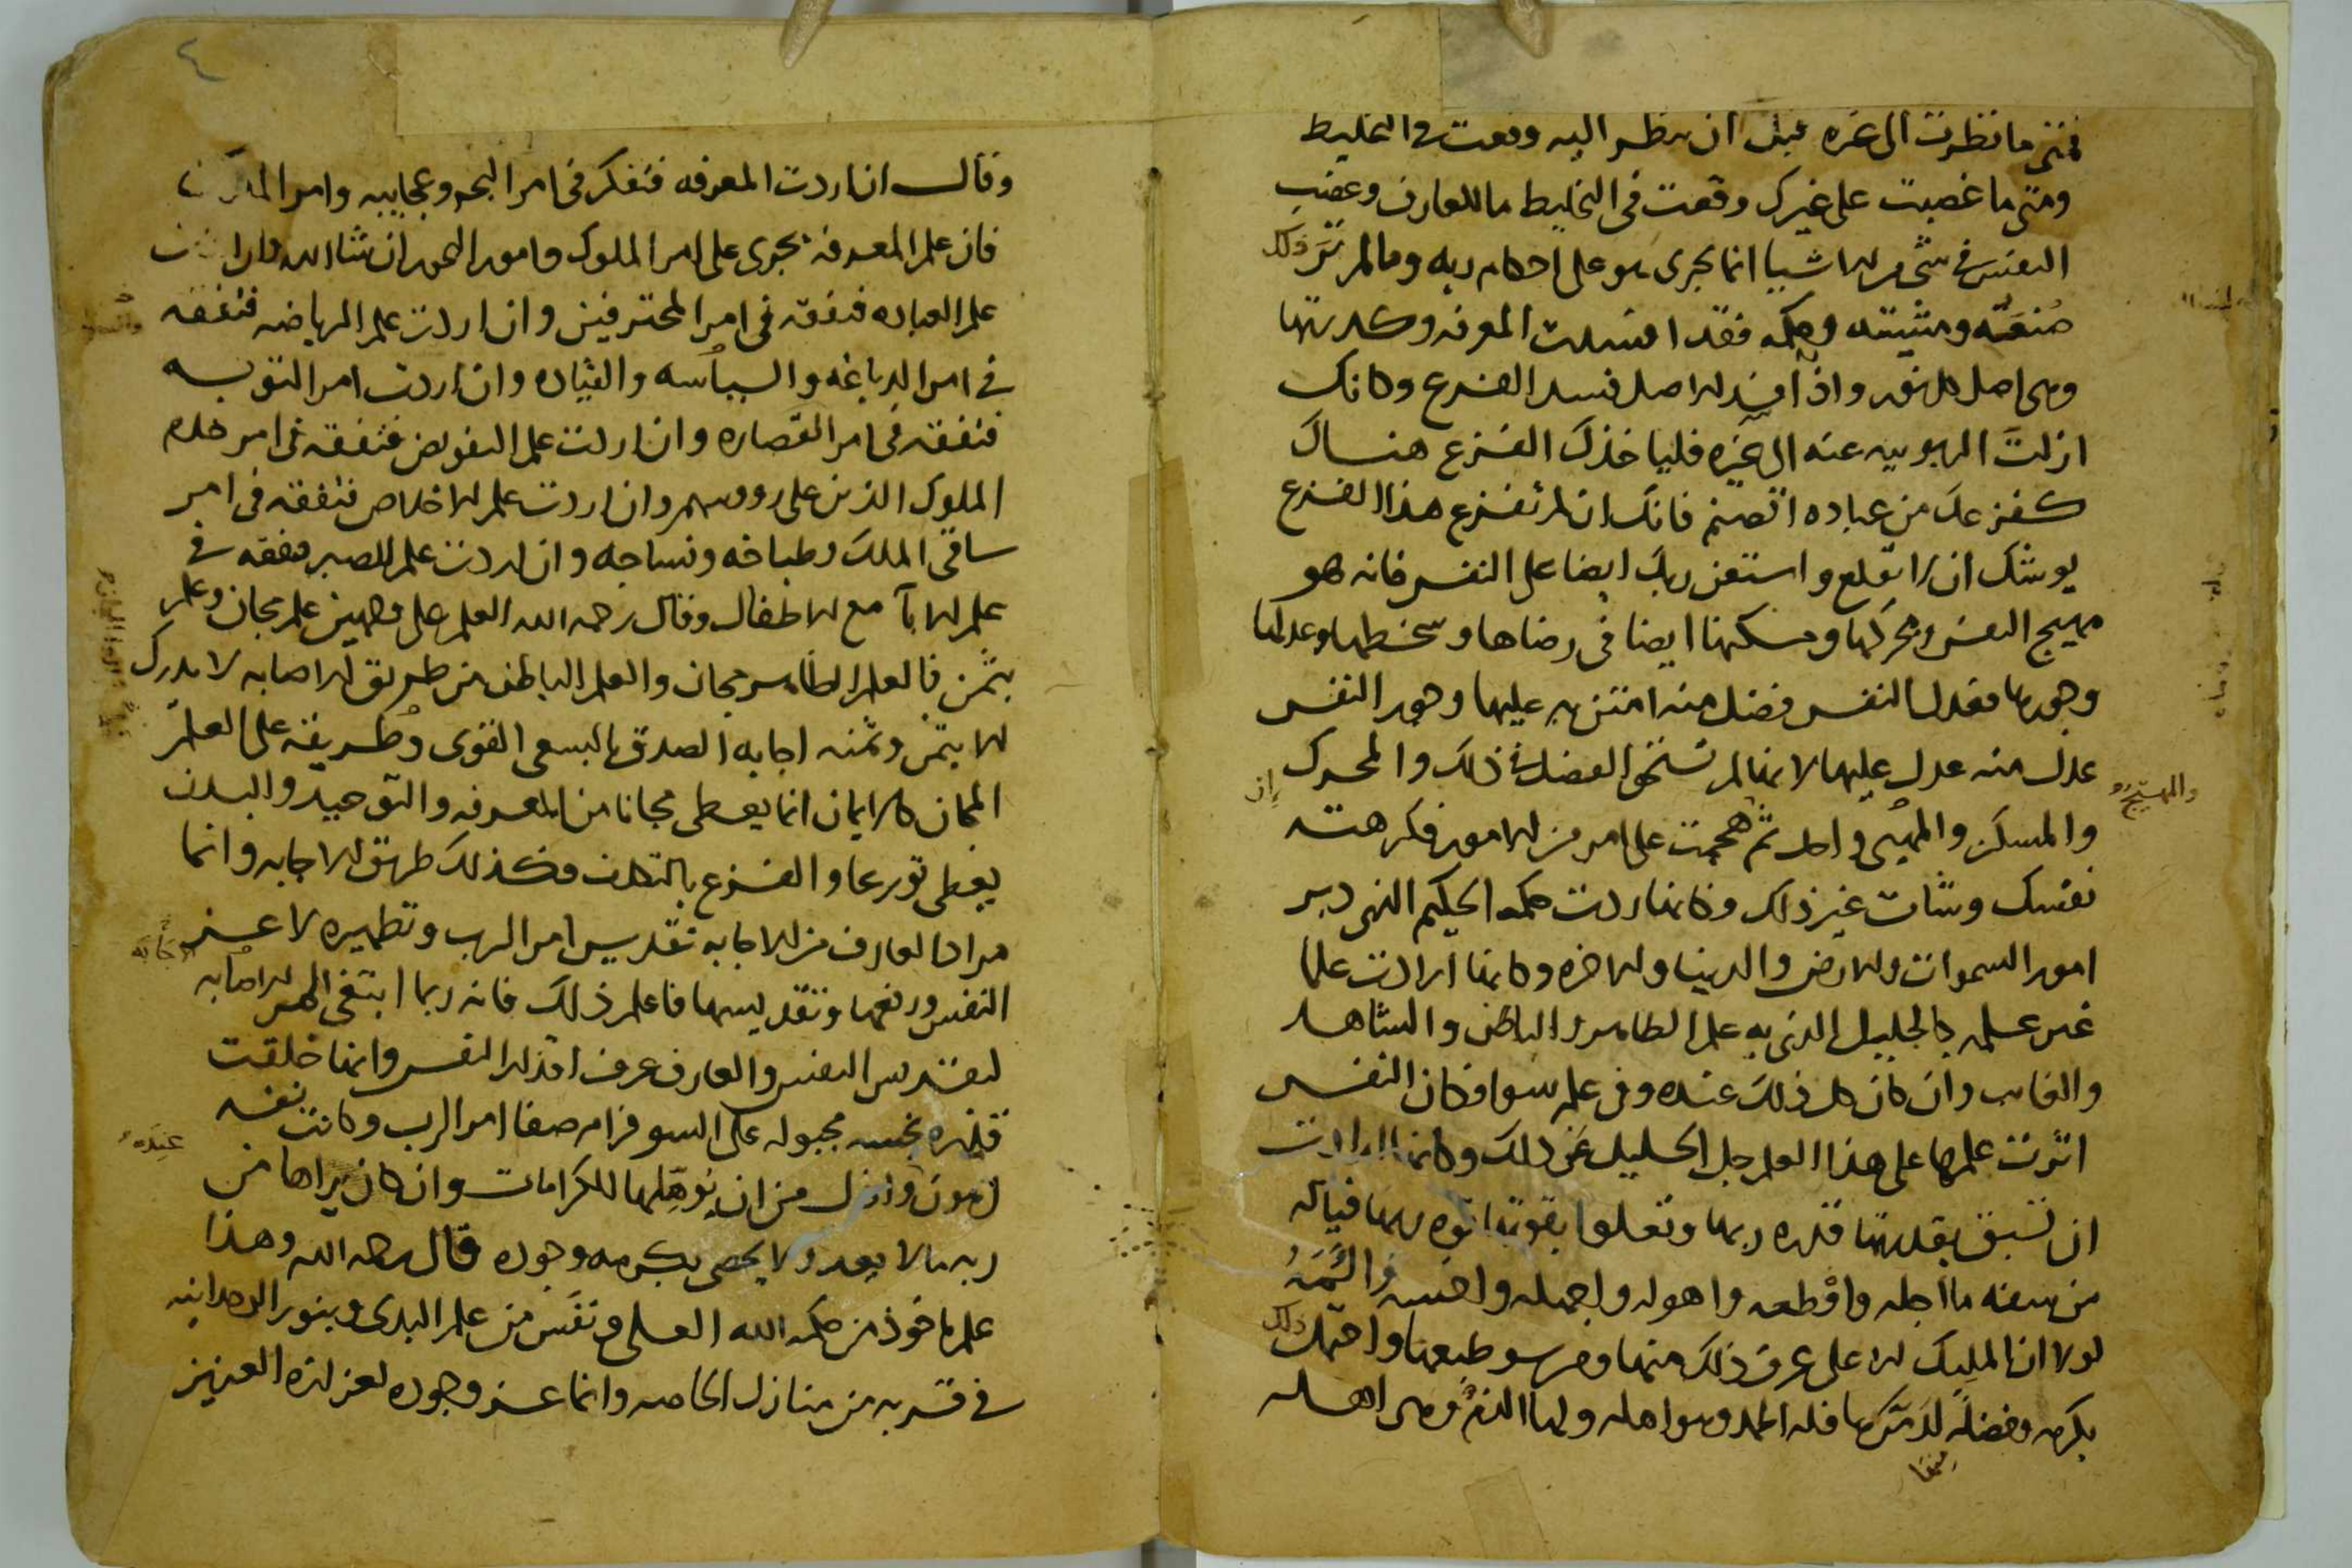 فمتى ما نظرت الى غيره قبل ان ينظر اليه وقعت في التخليط
ومتى ما غضبت على غيرك وقعت في التخليط ما للعارف وغضب
النفس في شي الاشيا انما يجرى على احكام ربه وما لم تر ذلك
صنعته ومشيته وحكمه فقد افسدت المعرفه وكدرتها
وهي اصل كل نور واذا افسد الاصل فسد الفرع وكانك
ازلت الربوبيه عنه الى غيره فلياخذك الفزع هناك
كفزعك من عباده الصنم فانك ان لم تفزع هذا الفزع
يوشك ان لا تقلع واستعن ربك ايضا على النفس فانه هو
مهيج النفس ومحركها ومسكنها ايضا في رضاها وسخطها وعدلها
وجورها فعدل النفس فضل منه امتن به عليها وجور النفس
عدل منه عدل عليها لانها لم تستحق الفضل في ذلك والمحرك
والمسكن واحد ثم هجمت على امر من الامور فكرهته
والمهيج
ان
نفسك وشات غير ذلك وكانها ردت حكمه الحكيم الذي دبر
امور السموات والارض والدنيا والاخره وكانها ارادت علما
غير علمه الجليل الذي به علم الظاهر والباطن والشاهد
والغايب وان كان كل ذلك عنده وفي علمه سوا فكان النفس
اثرت علمها على هذا العلم جل الجليل عن ذلك وكانها ارادت
ان تسبق بقدرتها قدره ربها وتعلوا بقوتها قوه ربها فياله
من سفه ما اجله وافظعه واهوله واجهله واخسه
لولا ان المليك الاعلى عرف ذلك منها ومن سو طبعها واحتمل ذلك
بكرمه وفضله فله الحمد وهو اهله ولها الذم وهي اهله
منها
٤
وقال ان اردت المعرفه فتفكر في امر البحر وعجايبه وامر
فان علم المعرفه يجرى على امر الملوك وامور البحور ان شا الله وان اردت
علم العباده فتفقه في امر المحترفين وان اردت علم الرياضه فتفقه
في امر الدباغه والسياسه وان اردت امر التوبه
فتفقه في امر القصاره وان اردت علم التفويض فتفقه في امر خدم
الملوك الذين على رووسهم وان اردت علم الاخلاص فتفقه في امر
ساقي الملك وطباخه ونساجه وان اردت علم الصبر فتفقه في
علم الابا مع الاطفال وقال رحمه الله العلم على وجهين علم مجان وعلم
بثمن فالعلم الظاهر مجان والعلم الباطن من طريق الاصابه لا يدرك
الا بثمن وثمنه اجابه الصدق بالسعي القوى وطريقه على العلم
المجان كالايمان انما يعطى مجانا من المعرفه والتوحيد والبدن
يعطى تورعا والفزع بالتكلف فكذلك طريق الاجابه وانما
مراد العارف من الاجابه تقديس امر الرب وتطهيره لا عز
النفس ورفعها وتقديسها فاعلم ذلك فانه ربما ابتغى المر الاصابه
الاجابه
لتقديس النفس والعارف عرف اقذار النفس وانها خلقت
قذره نجسه مجبوله على السو فرام صفا امر الرب وكانت نفسه
عنده
اهون وانزل من ان يوهلها للكرامات وان كان يراها من
ربه ما لا يعد ولا يحصى بكرمه وجوده قال رحمه الله وهذا
علم ماخوذ من حكم الله العلي ونفس من علم البدى وبنور الوحدانيه
في قربه من منازل الخاصه وانما عز وجوده لعز العزيز